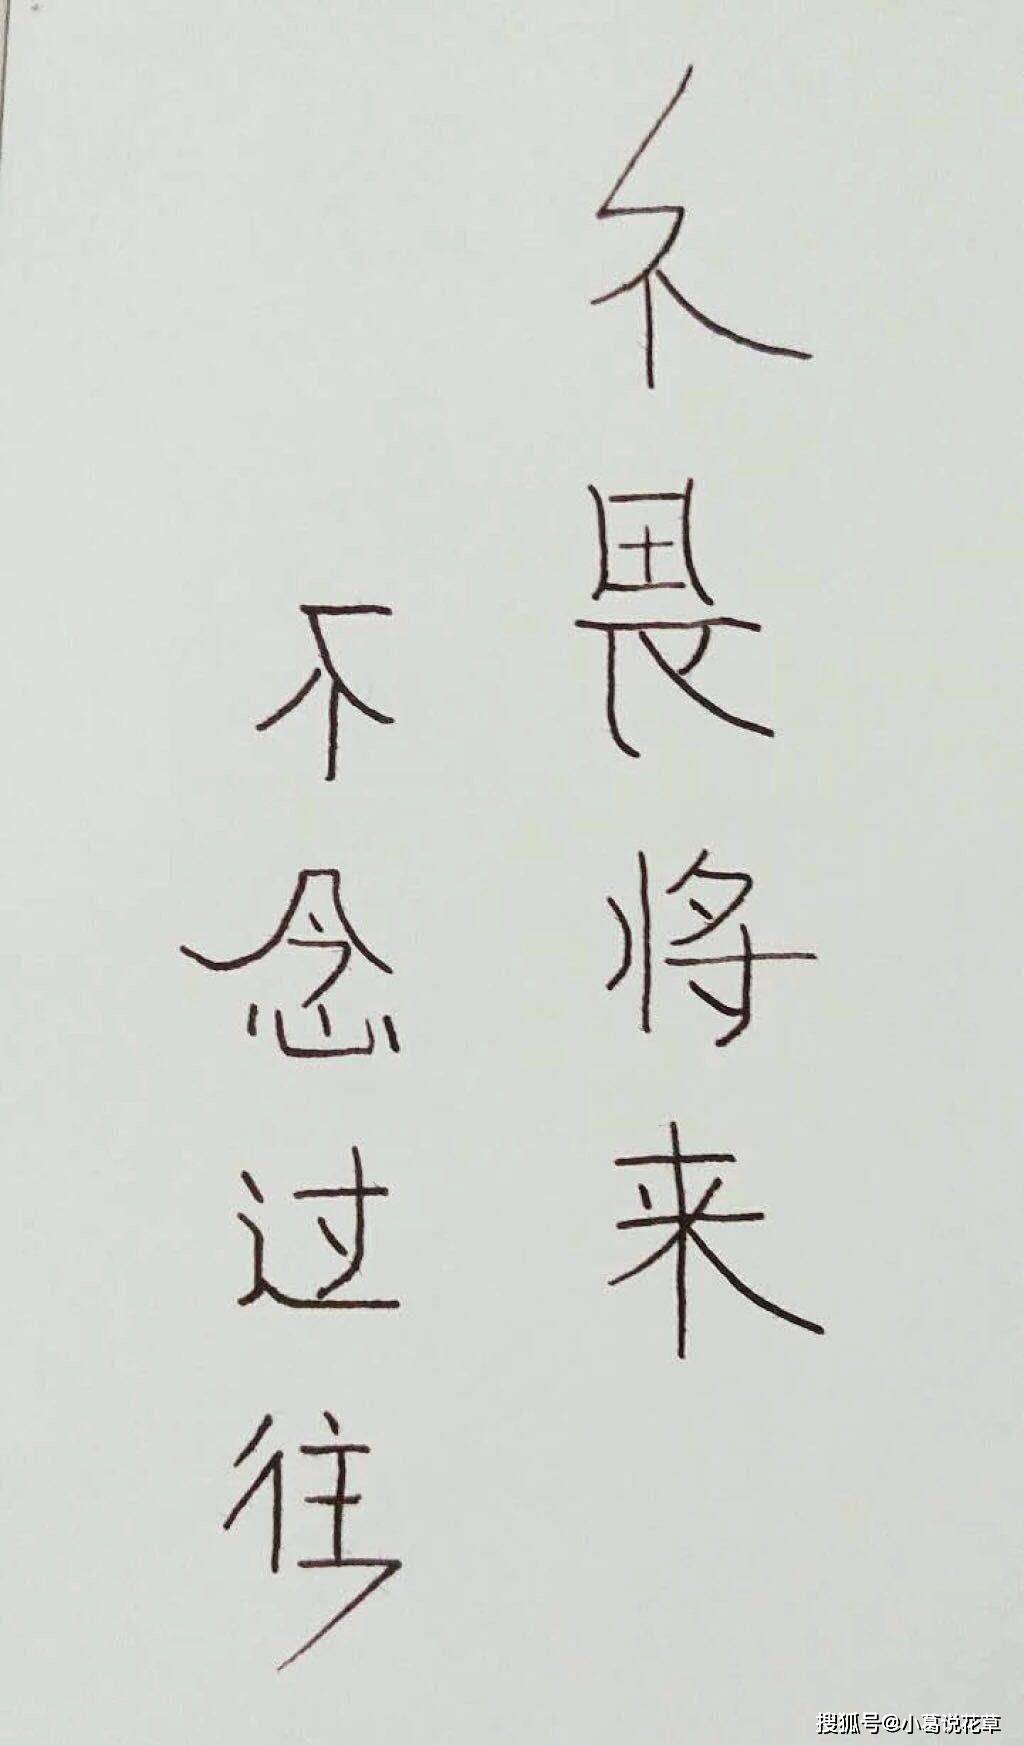 不畏将来
不念过往
搜狐号@小葛说花草